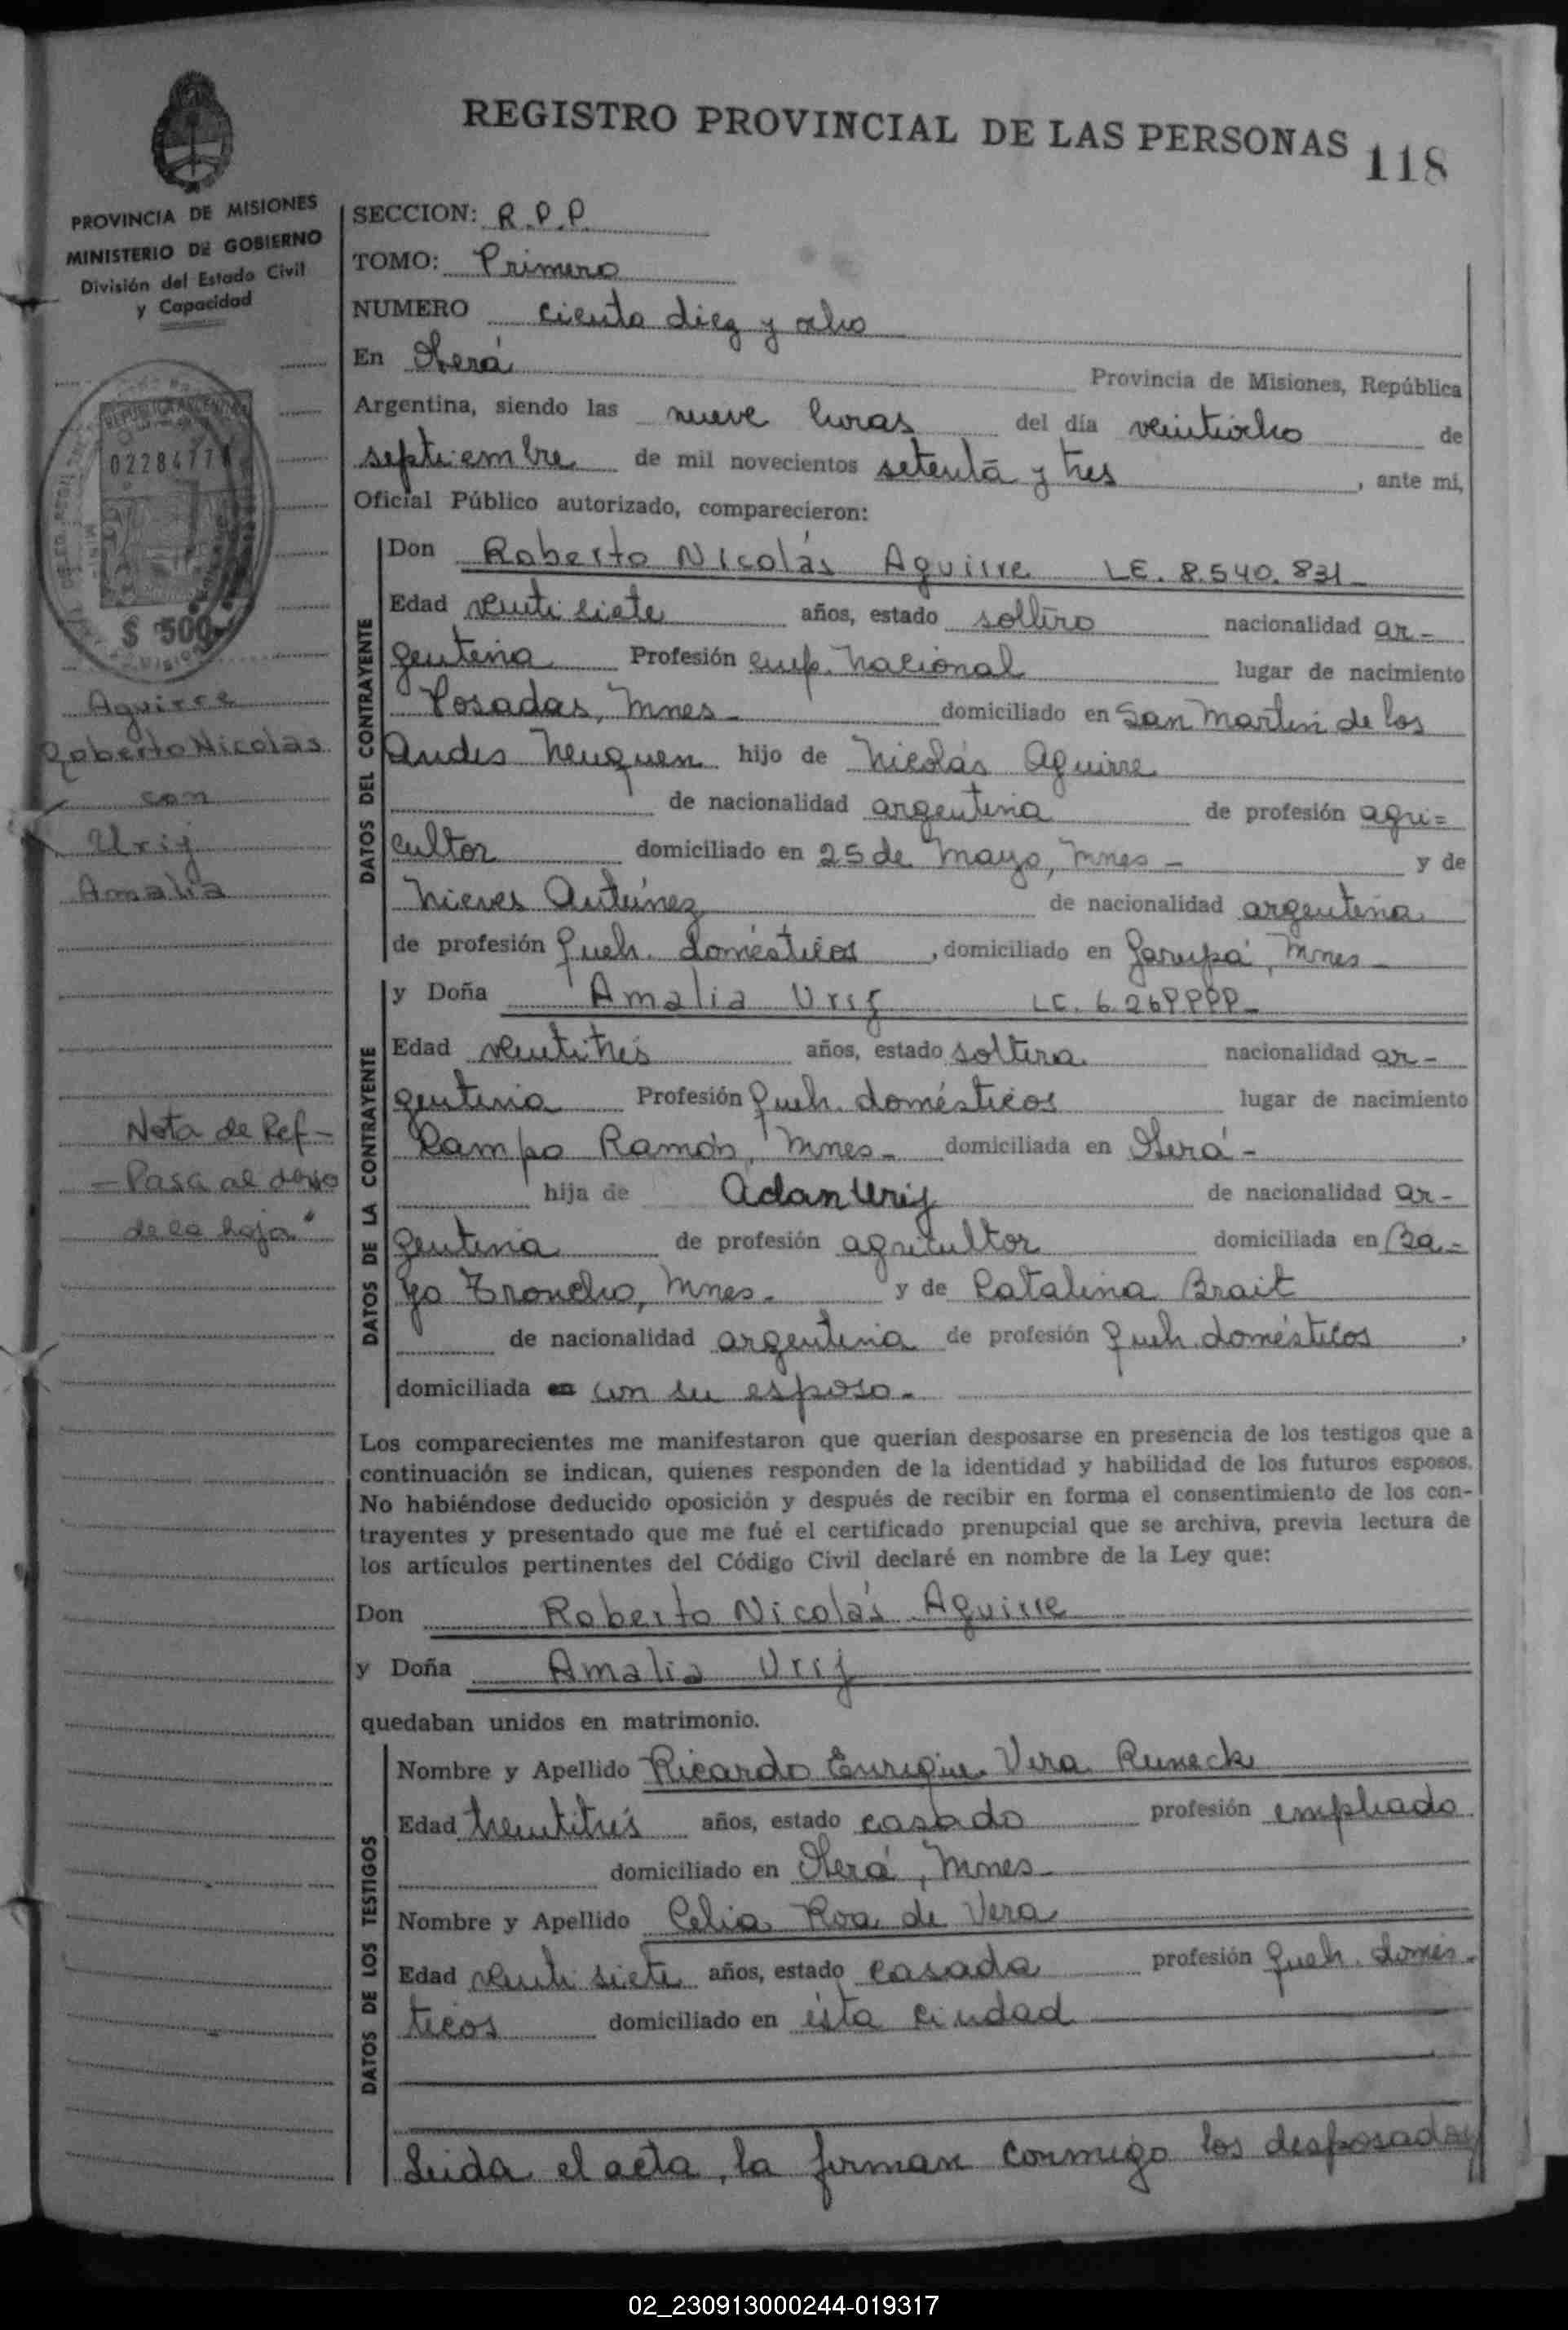 REGISTRO PROVINCIAL DE LAS PERSONAS 118
PROVINCIA DE MISIONES
MINISTERIO DE GOBIERNO
División del Estado Civil
y Capacidad
REPUBLICA ARGENTINA
$ 500
Aguirre
Roberto Nicolas
con
Urij
Amalia
Nota de Ref-
- Pasa al dorso
de la hoja"
SECCION: R.P.P.
TOMO: Primero
NUMERO ciento diez y ocho
En Oberá Provincia de Misiones, República
Argentina, siendo las nueve horas del día veintiocho de
septiembre de mil novecientos setenta y tres, ante mi,
Oficial Público autorizado, comparecieron:
DATOS DEL CONTRAYENTE
Don Roberto Nicolás Aguirre LE. 8.540.831-
Edad veinti siete años, estado soltero nacionalidad ar-
gentina Profesión emp. Nacional lugar de nacimiento
Posadas, Mnes- domiciliado en San Martin de los
Andes Neuquen hijo de Nicolás Aguirre
de nacionalidad argentina de profesión agri=
cultor domiciliado en 25 de Mayo, Mnes- y de
Nieves Antúnez de nacionalidad argentina
de profesión Queh. domésticos, domiciliado en Garupá, Mnes-
DATOS DE LA CONTRAYENTE
y Doña Amalia Urij LC. 6.26
Edad veintitrés años, estado soltera nacionalidad ar-
gentina Profesión Queh. domésticos lugar de nacimiento
Campo Ramón, Mnes- domiciliada en Oberá-
hija de Adan Urij de nacionalidad ar-
gentina de profesión agricultor domiciliada en Ba-
yo Troncho, Mnes- y de Catalina Brait
de nacionalidad argentina de profesión Queh. domésticos,
domiciliada en con su esposo-
Los comparecientes me manifestaron que querían desposarse en presencia de los testigos que a
continuación se indican, quienes responden de la identidad y habilidad de los futuros esposos.
No habiéndose deducido oposición y después de recibir en forma el consentimiento de los con-
trayentes y presentado que me fué el certificado prenupcial que se archiva, previa lectura de
los artículos pertinentes del Código Civil declaré en nombre de la Ley que:
Don Roberto Nicolás Aguirre
y Doña Amalia Urij
quedaban unidos en matrimonio.
DATOS DE LOS TESTIGOS
Nombre y Apellido Ricardo Enrique Vera Runeck
Edad treintitrés años, estado casado profesión empleado
domiciliado en Oberá, Mnes-
Nombre y Apellido Celia Roa de Vera
Edad veinti siete años, estado casada profesión Queh. domés-
ticos domiciliado en ésta ciudad
Leida el acta, la firman conmigo los desposados
02_230913000244-019317